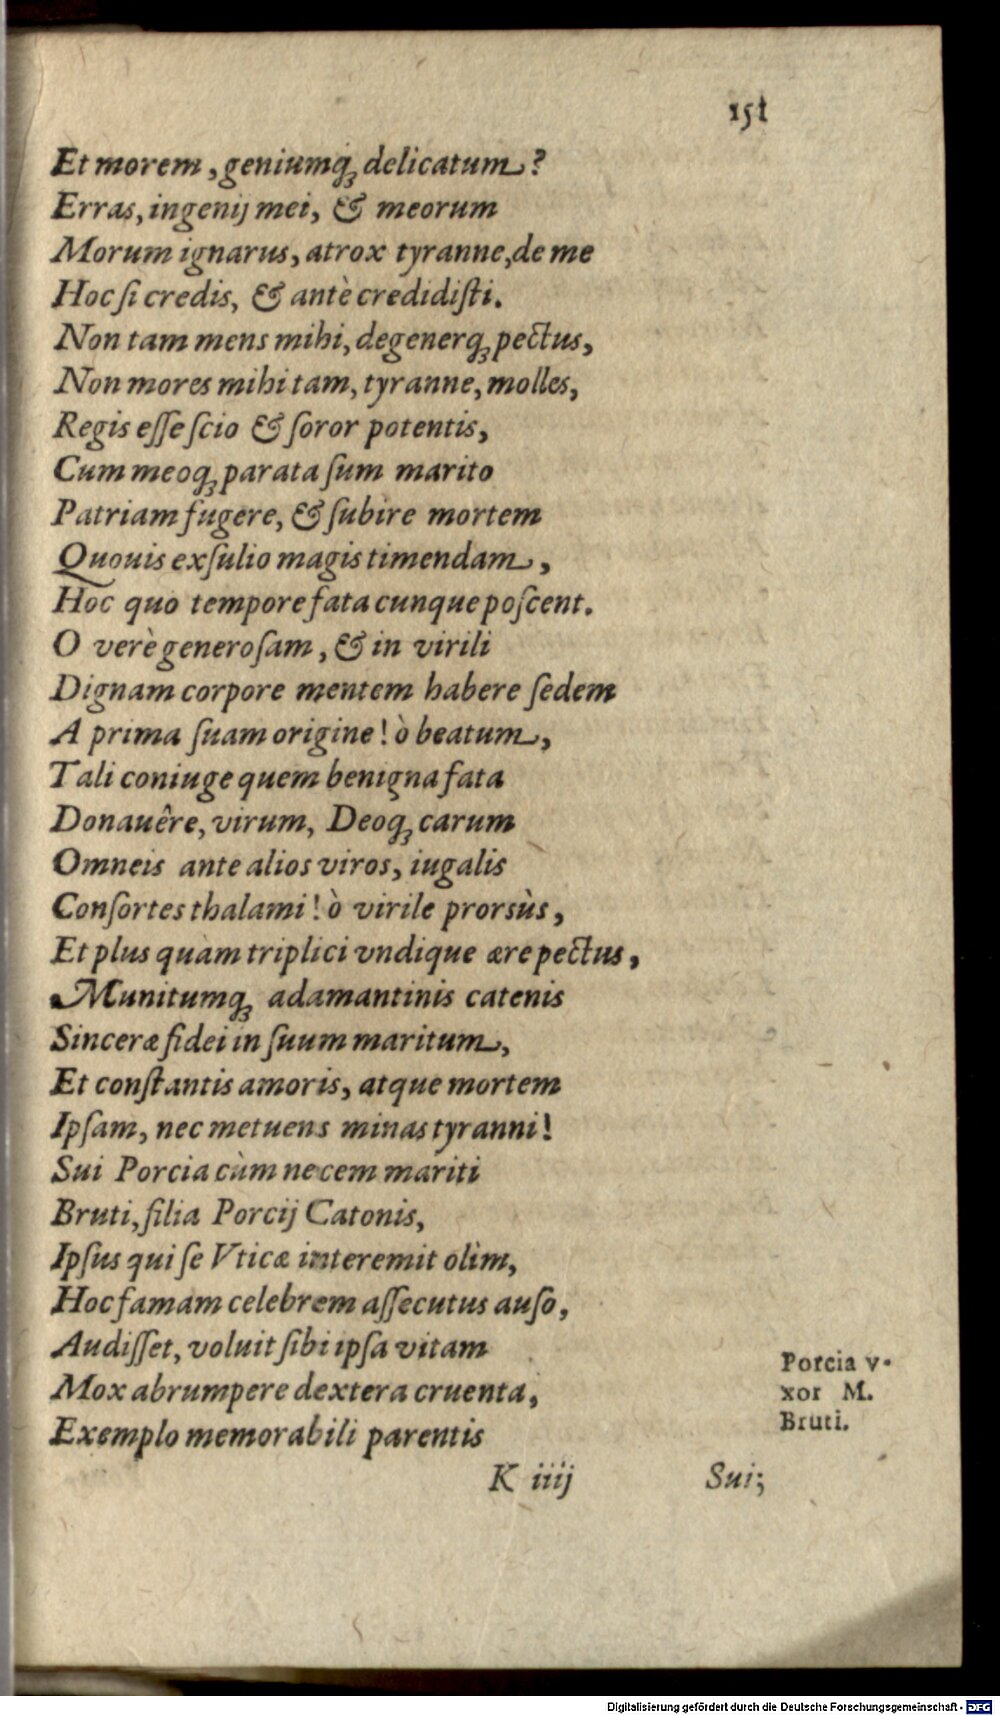 151
Et morem, geniumq́ꝫ delicatum?
Erras, ingenij mei, & meorum
Morum ignarus, atrox tyranne, de me
Hoc ſi credis, & antè credidiſti.
Non tam mens mihi, degenerq́ꝫ pectus,
Non mores mihi tam, tyranne, molles,
Regis eſſe ſcio & ſoror potentis,
Cum meoq́ꝫ parata ſum marito
Patriam fugere, & ſubire mortem
Quouis exſulio magis timendam,
Hoc quo tempore fata cunque poſcent.
O verè generoſam, & in virili
Dignam corpore mentem habere ſedem
A prima ſuam origine! ò beatum,
Tali coniuge quem benigna fata
Donauêre, virum, Deoq́ꝫ carum
Omneis ante alios viros, iugalis
Conſortes thalami! ò virile prorsùs,
Et plus quàm triplici vndique ære pectus,
Munitumq́ꝫ adamantinis catenis
Sinceræ fidei in ſuum maritum,
Et conſtantis amoris, atque mortem
Ipſam, nec metuens minas tyranni!
Sui Porcia cùm necem mariti
Bruti, filia Porcij Catonis,
Ipſus qui ſe Vticæ interemit olìm,
Hoc famam celebrem aſſecutus auſo,
Audiſſet, voluit ſibi ipſa vitam
Mox abrumpere dextera cruenta,
Exemplo memorabili parentis
Porcia v-
xor M.
Bruti.
K iiij Sui;
Digitalisierung gefördert durch die Deutsche Forschungsgemeinschaft - DFG